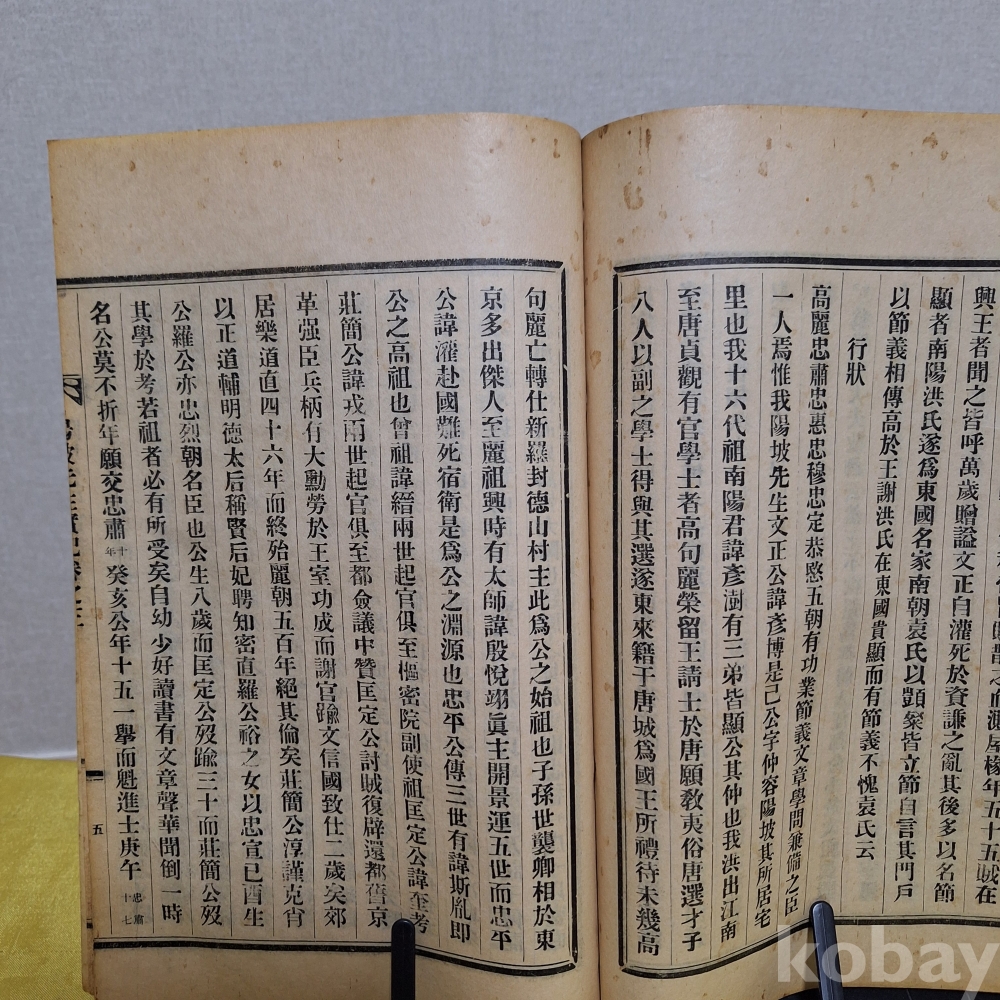 興王者聞之皆呼萬歲贈諡文正自灌死於資謙之亂其後多以名節
顯者南陽洪氏遂爲東國名家南朝袁氏以顗粲皆立節自言其門戶
以節義相傳高於王謝洪氏在東國貴顯而有節義不愧袁氏云
行狀
高麗忠肅忠惠忠穆忠定恭愍五朝有功業節義文章學問兼備之臣
一人焉惟我陽坡先生文正公諱彥博是已公字仲容陽坡其所居宅
里也我十六代祖南陽君諱彥澍有三弟皆顯公其仲也我洪出江南
至唐貞觀有官學士者高句麗榮留王請士於唐願敎夷俗唐選才子
八人以副之學士得與其選遂東來籍于唐城爲國王所禮待未幾高
句麗亡轉仕新羅封德山村主此爲公之始祖也子孫世襲卿相於東
京多出傑人至麗祖興時有太師諱殷悅翊眞主開景運五世而忠平
公諱灌赴國難死宿衛是爲公之淵源也忠平公傳三世有諱斯胤即
公之高祖也曾祖諱縉兩世起官俱至樞密院副使祖匡定公諱奎考
莊簡公諱戎兩世起官俱至都僉議中贊匡定公討賊復辟還都舊京
革强臣兵柄有大勳勞於王室功成而謝官踰文信國致仕二歲矣郊
居樂道直四十六年而終殆麗朝五百年絕其倫矣莊簡公淳謹克肖
以正道輔明德太后稱賢后妃聘知密直羅公裕之女以忠宣已酉生
公羅公亦忠烈朝名臣也公生八歲而匡定公歿踰三十而莊簡公歿
其學於考若祖者必有所受矣自幼少好讀書有文章聲華聞倒一時
名公莫不折年願交忠肅十年癸亥公年十五一舉而魁進士庚午忠肅十七
五
kobay